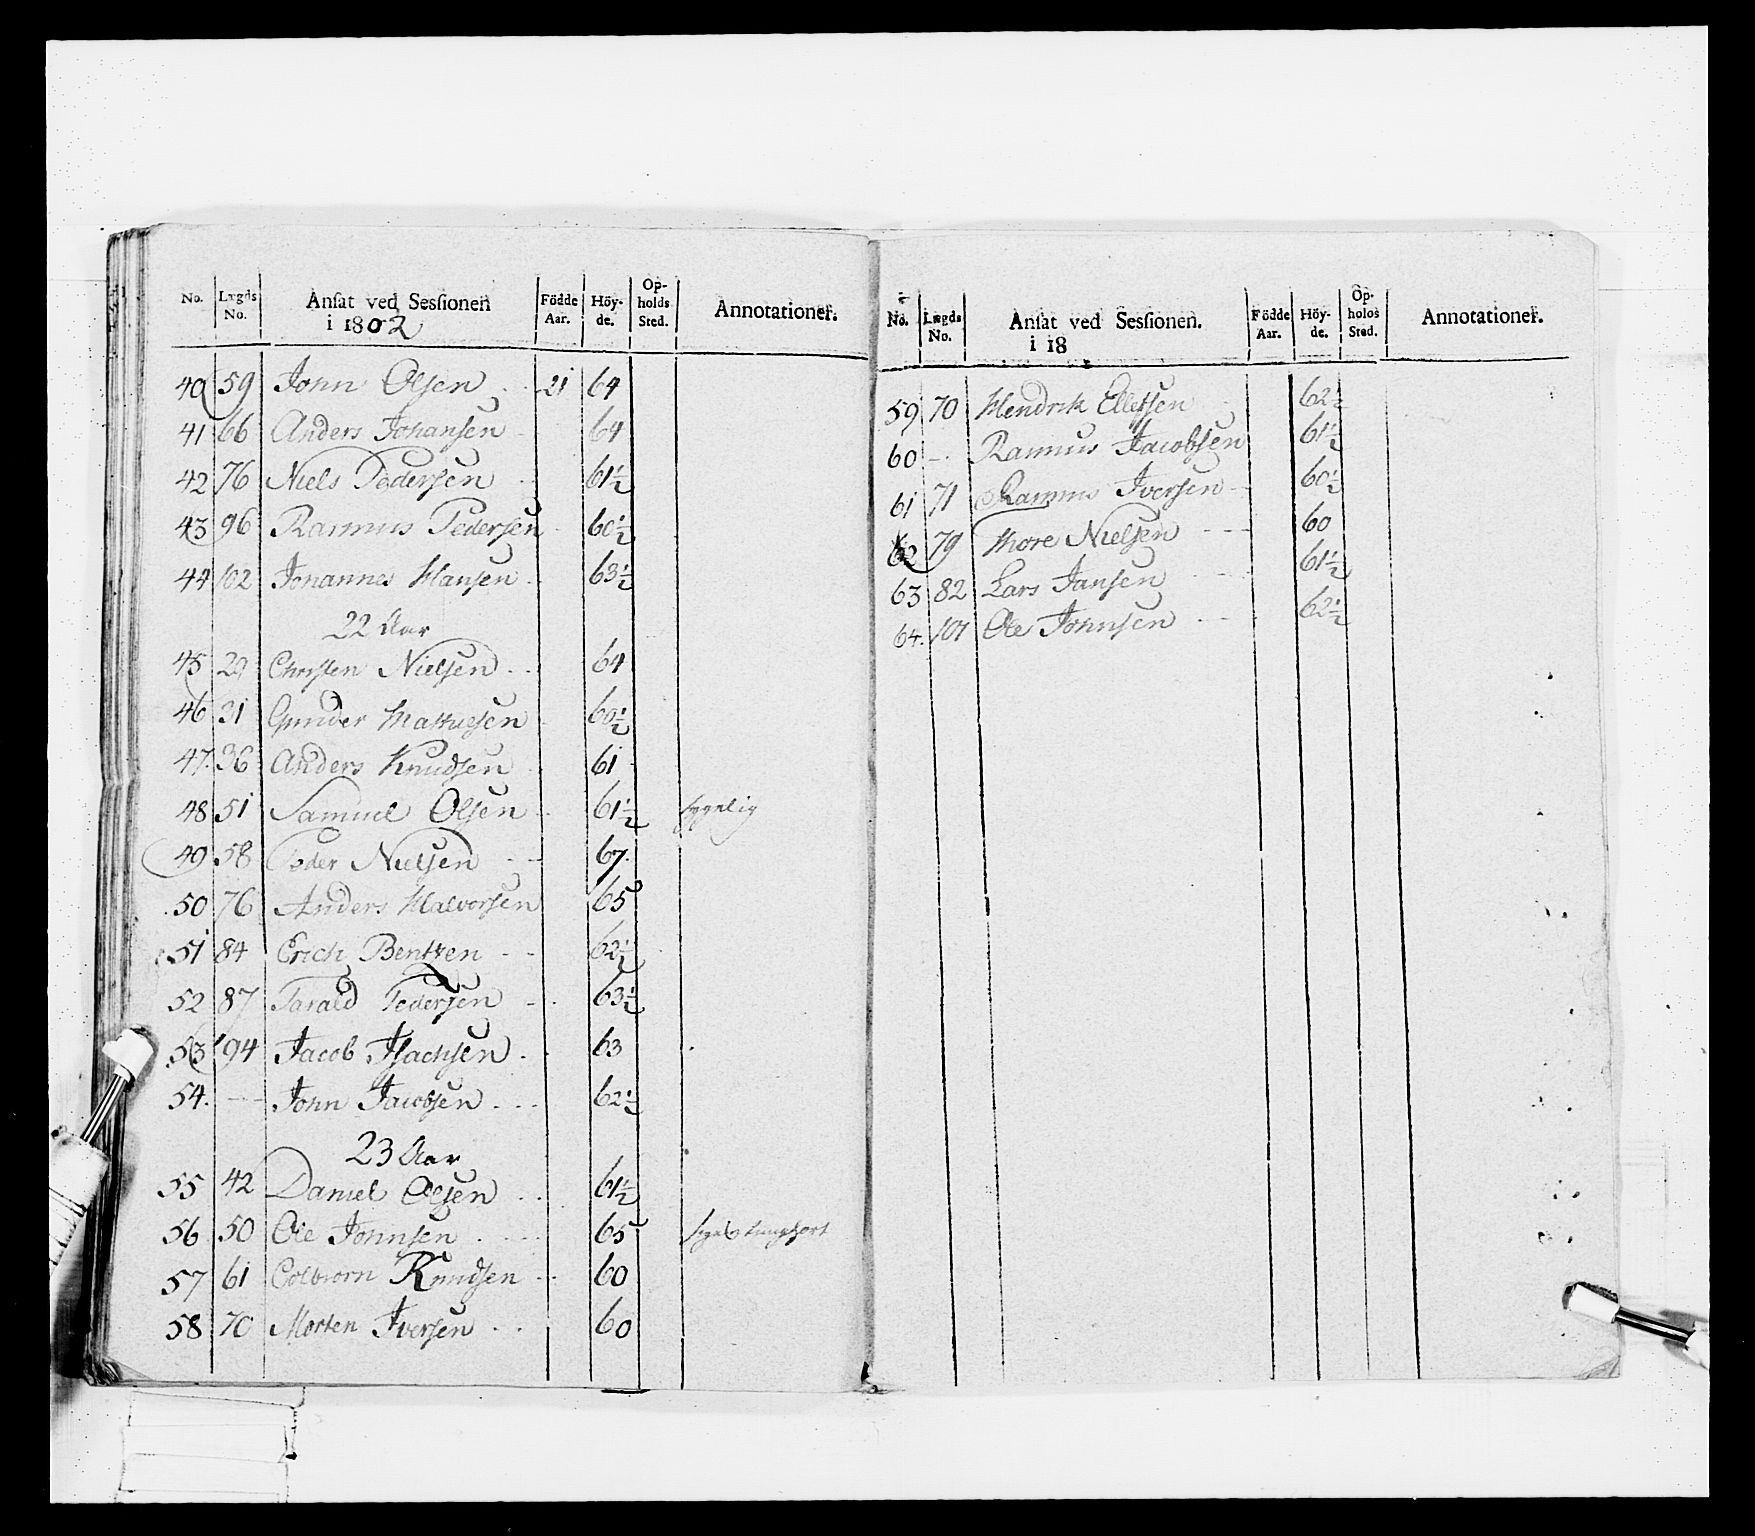 No. Lægds No. Ansat ved Sessionen i 1802 Födde Aar. Höy- de. Op- holds Sted. Annotationer.
40 59 John Olsen 21 64
41 66 Anders Johansen 64
42 76 Niels Pedersen 61½
43 96 Rasmus Pedersen 60½
44 102 Johannes Hansen 63½
22 Aar
45 29 Christen Nielsen 64
46 31 Gunder Mathiesen 60½
47. 36 Anders Knudsen 61
48 51 Samuel Olsen 61½ sygelig
49 58 Peder Nielsen 67.
50 76 Anders Halvorsen 65
51 84 Erich Bentsen 62½
52 87 Tarald Pedersen 63½
53 94 Jacob Isachsen 63
54. – John Jacobsen 62½
23 Aar
55 42 Daniel Olsen 61½
56 50 Ole Johnsen 65
57 61 Colbiorn Knudsen 60
58 70 Morten Iversen 60
No. Lægds No. Ansat ved Sessionen. i 18 Födde Aar. Höy- de. Op- holds Sted. Annotationer.
59 70 Hendrik Ellefsen 62½
60 – Rasmus Jacobsen 61½
61 71 Rasmus Iversen 60½
62 79 Thore Nielsen 60
63 82 Lars Jansen 61½
64. 101 Ole Johnsen 62½